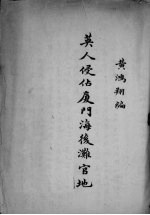 黄鴻翔編
英人侵佔厦門海後灘官地